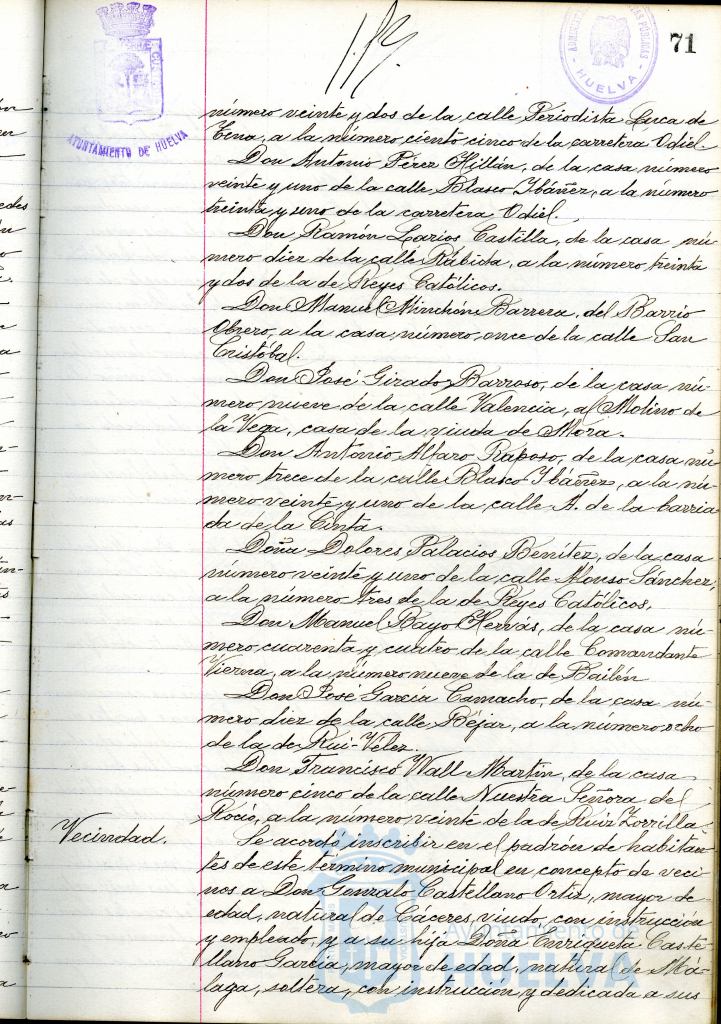 71
AYUNTAMIENTO DE HUELVA
HUELVA
número veinte y dos de la calle Periodista Luca de
Tena, a la número ciento cinco de la carretera Odiel.
Don Antonio Pérez Millán, de la casa número
veinte y uno de la calle Blasco Ibáñez, a la número
treinta y uno de la carretera Odiel.
Don Ramón Larios Castilla, de la casa nú-
mero diez de la calle Rábida, a la número treinta
y dos de la de Reyes Católicos.
Don Manuel Minchón Barrera, del Barrio
Obrero, a la casa número once de la calle San
Cristóbal.
Don José Girado Barroso, de la casa nú-
mero nueve de la calle Valencia, al Molino de
la Vega, casa de la viuda de Mora.
Don Antonio Alfaro Raposo, de la casa nú
mero trece de la calle Blasco Ibáñez, a la nú-
mero veinte y uno de la calle A. de la barria
da de la Cinta.
Doña Dolores Palacios Benítez, de la casa
número veinte y uno de la calle Alonso Sánchez,
a la número tres de la de Reyes Católicos.
Don Manuel Bayo Hervás, de la casa nú-
mero cuarenta y cuatro de la calle Comandante
Vierna, a la número nueve de la de Bailén
Don José García Camacho, de la casa nú-
mero diez de la calle Béjar, a la número ocho
de la de Rui-Vélez.
Don Francisco Wall Martín, de la casa
número cinco de la calle Nuestra Señora del
Rocío, a la número veinte de la de Ruiz Zorrilla.
Vecindad.
Se acordó inscribir en el padrón de habitan-
tes de este término municipal en concepto de veci
nos a Don Gonzalo Castellano Ortiz, mayor de
edad, natural de Cáceres, viudo, con instrucción
y empleado, y a su hija Doña Enriqueta Caste-
llano García, mayor de edad, natural de Má-
laga, soltera, con instrucción y dedicada a sus
Ayuntamiento de
HUELVA